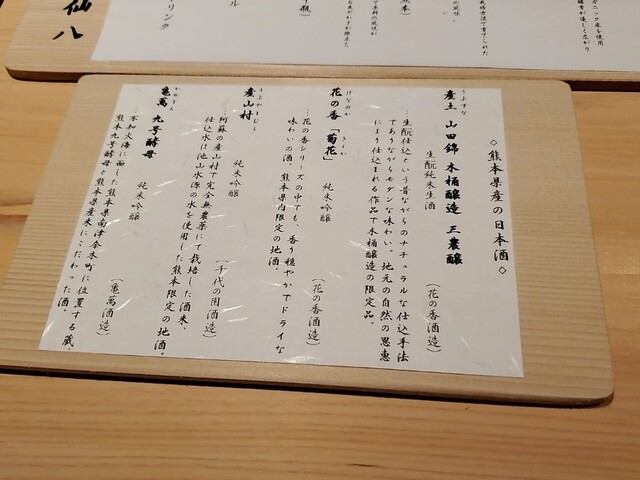 ◇熊本県産の日本酒◇
うぶすな
産土 山田錦 木桶醸造 三農醸
生酛純米生酒
(花の香酒造)
…生酛仕込という昔ながらのナチュラルな仕込手法
でありながらモダンな味わい。地元の自然の恩恵
により仕込まれる作品で木桶醸造の限定品。
はなのか きくか
花の香「菊花」
純米吟醸
(花の香酒造)
…花の香シリーズの中でも、香り穏やかでドライな
味わいの酒。熊本県内限定の地酒。
うぶやまむら
産山村
純米吟醸
(千代の園酒造)
…阿蘇の産山村で完全無農薬にて栽培した酒米、
仕込水は池山水源の水を使用した熊本限定の地酒。
かめまん
亀萬 九号酵母
純米吟醸
(亀萬酒造)
…不知火海に面した熊本県南津奈木町に位置する蔵。
熊本九号酵母と熊本県産米にこだわった酒。
仙八
リンク